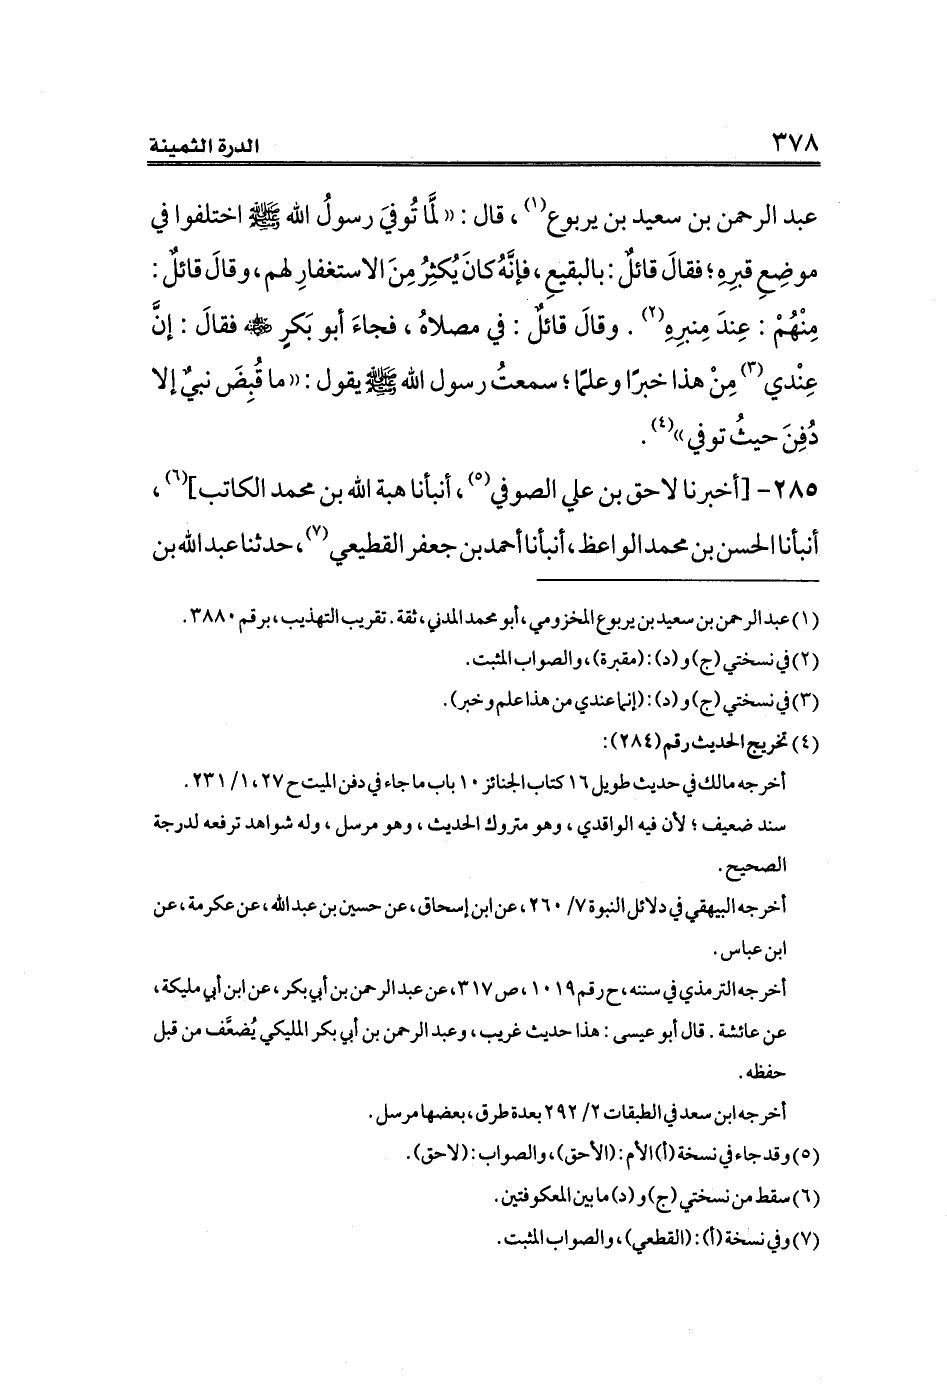 ٣٧٨
الدرة الثمينة
عبد الرحمن بن سعيد بن يربوع(١)، قال : « لمَّا تُوفيَ رسولُ الله ﷺ اختلفوا في
موضِعِ قبرِهِ؛ فقالَ قائلٌ : بالبقيعِ، فإنَّهُ كانَ يُكثِرُ مِنَ الاستغفارِ لهم، وقالَ قائلٌ :
مِنْهُمْ : عِندَ مِنبرِهِ(٢) . وقالَ قائلٌ : في مصلاهُ ، فجاءَ أبو بَكرٍ ﵁ فقالَ : إنَّ
عِنْدي(٣) مِنْ هذا خبرًا وعلمًا ؛ سمعتُ رسول الله ﷺ يقول : «ما قُبِضَ نبيٌ إلا
دُفِنَ حيثُ توفي»(٤).
٢٨٥- [أخبرنا لاحق بن علي الصوفي(٥)، أنبأنا هبة الله بن محمد الكاتب](٦)،
أنبأنا الحسن بن محمد الواعظ، أنبأنا أحمد بن جعفر القطيعي(٧)، حدثنا عبد الله بن
(١) عبد الرحمن بن سعيد بن يربوع المخزومي، أبو محمد المدني، ثقة. تقريب التهذيب، برقم ٣٨٨٠.
(٢) في نسختي (ج) و (د): (مقبرة)، والصواب المثبت.
(٣) في نسختي (ج) و (د): (إنما عندي من هذا علم وخبر).
(٤) تخريج الحديث رقم (٢٨٤):
أخرجه مالك في حديث طويل ١٦ كتاب الجنائز ١٠ باب ما جاء في دفن الميت ح ٢٧، ١/ ٢٣١.
سند ضعيف ؛ لأن فيه الواقدي ، وهو متروك الحديث ، وهو مرسل ، وله شواهد ترفعه لدرجة
الصحيح.
أخرجه البيهقي في دلائل النبوة ٧/ ٢٦٠، عن ابن إسحاق، عن حسين بن عبد الله، عن عكرمة، عن
ابن عباس.
أخرجه الترمذي في سننه، ح رقم ١٠١٩، ص ٣١٧، عن عبد الرحمن بن أبي بكر، عن ابن أبي مليكة،
عن عائشة . قال أبو عيسى : هذا حديث غريب، وعبد الرحمن بن أبي بكر المليكي يُضعَّف من قبل
حفظه.
أخرجه ابن سعد في الطبقات ٢/ ٢٩٢ بعدة طرق، بعضها مرسل.
(٥) وقد جاء في نسخة (أ) الأم: (الأحق)، والصواب: (لاحق).
(٦) سقط من نسختي (ج) و (د) ما بين المعكوفتين.
(٧) وفي نسخة (أ): (القطعي)، والصواب المثبت.